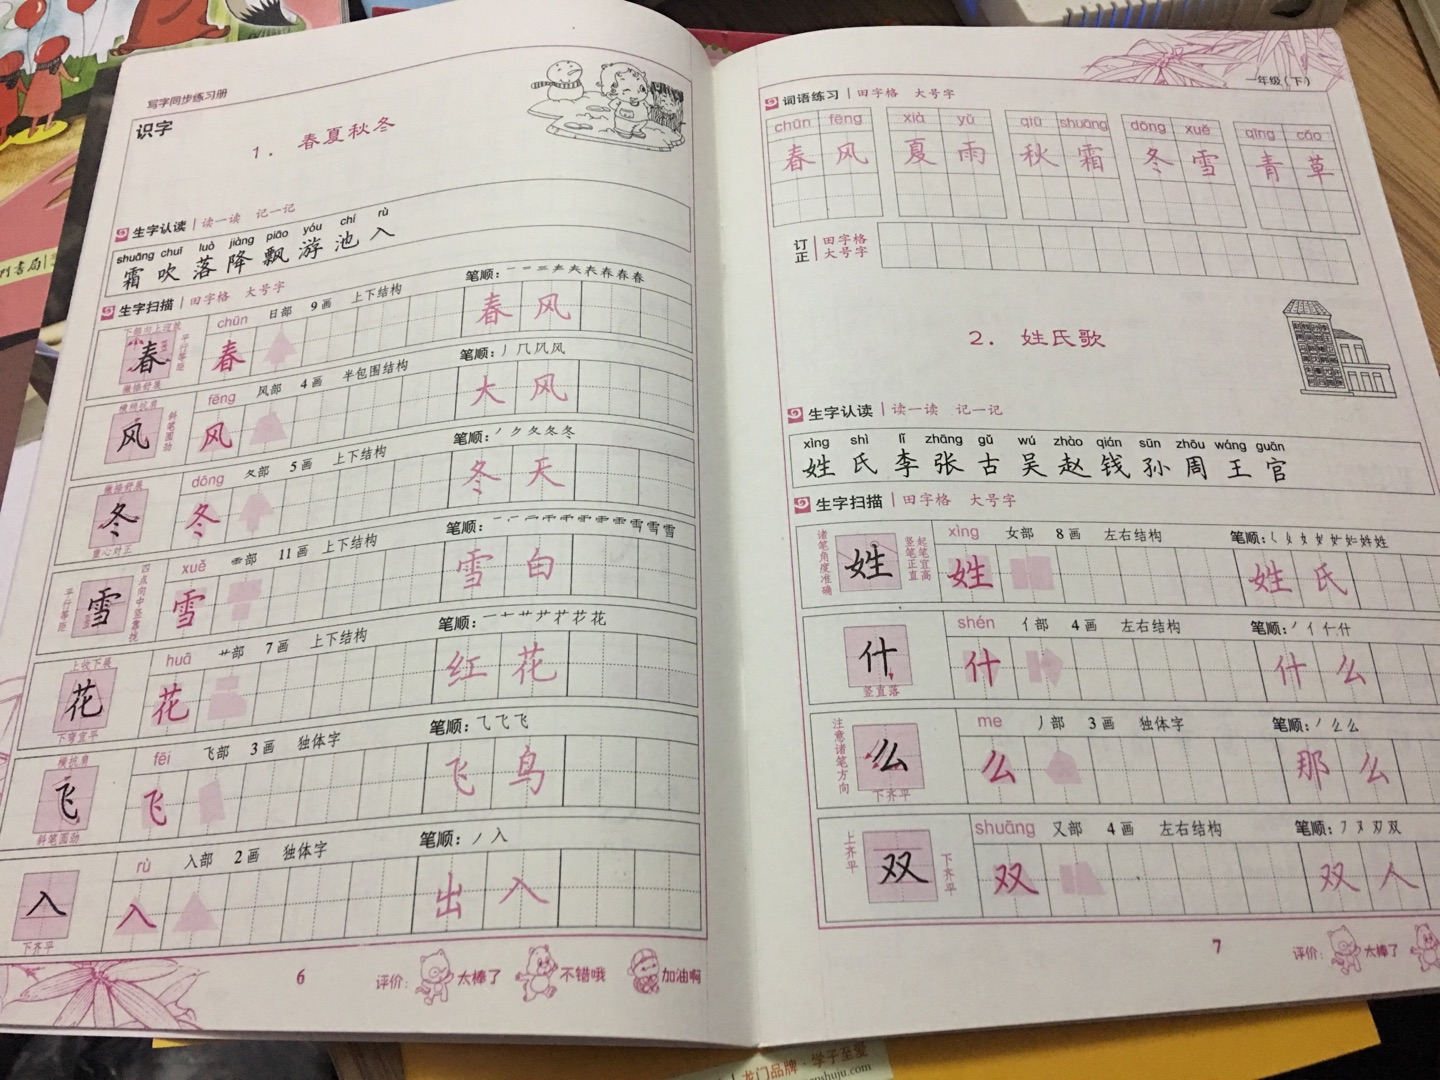 写字同步练习册
识字
1. 春夏秋冬
生字认读 读一读 记一记
shuāng chuī luò jiàng piāo yóu chí rù
霜 吹 落 降 飘 游 池 入
生字扫描 田字格 大号字
chūn 日部 9画 上下结构 笔顺:
平行等距
撇捺舒展
春 春 春 风
fēng 风部 4画 半包围结构 笔顺:
斜笔圆劲
风 风 大 风
dōng 夂部 5画 上下结构 笔顺:
撇捺舒展
重心对正
冬 冬 冬 天
xuě 雨部 11画 上下结构 笔顺:
平行等距
四点向中竖靠找
雪 雪 雪 白
huā 艹部 7画 上下结构 笔顺:
上收下展
下弯宜平
花 花 红 花
fēi 飞部 3画 独体字 笔顺:
横抗肩
斜笔圆劲
飞 飞 飞 鸟
rù 入部 2画 独体字 笔顺:丿入
下齐平
入 入 出 入
6 评价: 太棒了 不错哦 加油啊
一年级(下)
词语练习 田字格 大号字
chūn fēng xià yǔ qiū shuāng dōng xuě qīng cǎo
春 风 夏 雨 秋 霜 冬 雪 青 草
订正 田字格 大号字
2. 姓氏歌
生字认读 读一读 记一记
xìng shì lǐ zhāng gǔ wú zhào qián sūn zhōu wáng guān
姓 氏 李 张 古 吴 赵 钱 孙 周 王 官
生字扫描 田字格 大号字
xìng 女部 8画 左右结构 笔顺:
诸笔角度准确
起笔宜高
竖笔正直
姓 姓 姓 氏
shén 亻部 4画 左右结构 笔顺:
竖直落
什 什 什 么
me 丿部 3画 独体字 笔顺:
注意诸笔方向
下齐平
么 么 那 么
shuāng 又部 4画 左右结构 笔顺:
上齐平
下齐平
双 双 双 人
7 评价: 太棒了
龙门品牌·学子至爱